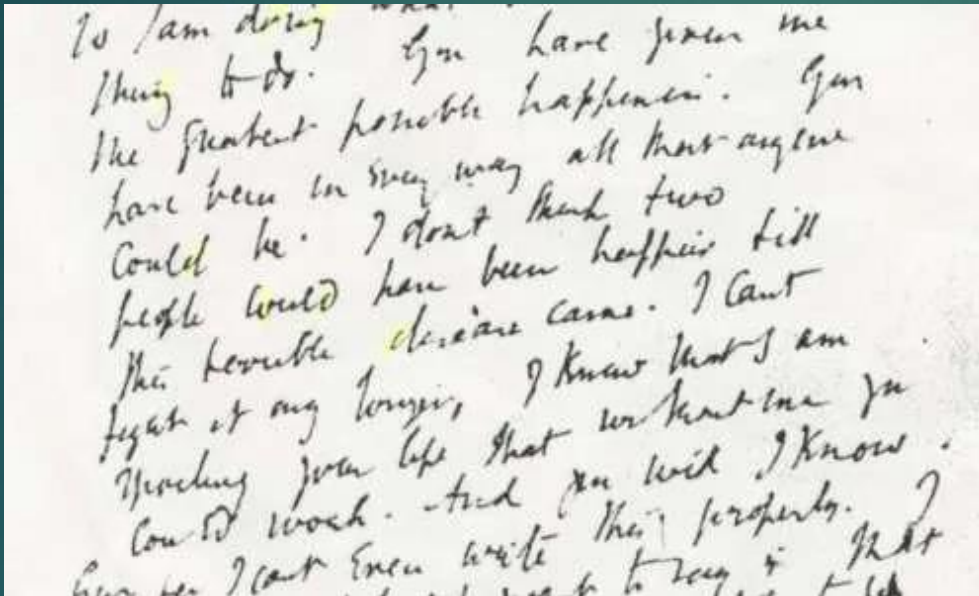 So I am doing what
thing to do. You have given me
the greatest possible happiness. You
have been in every way all that anyone
could be. I dont think two
people could have been happier till
this terrible disease came. I cant
fight it any longer, I know that I am
spoiling your life that without me you
could work. And you will I know.
You see I cant even write this properly. I
to say is that